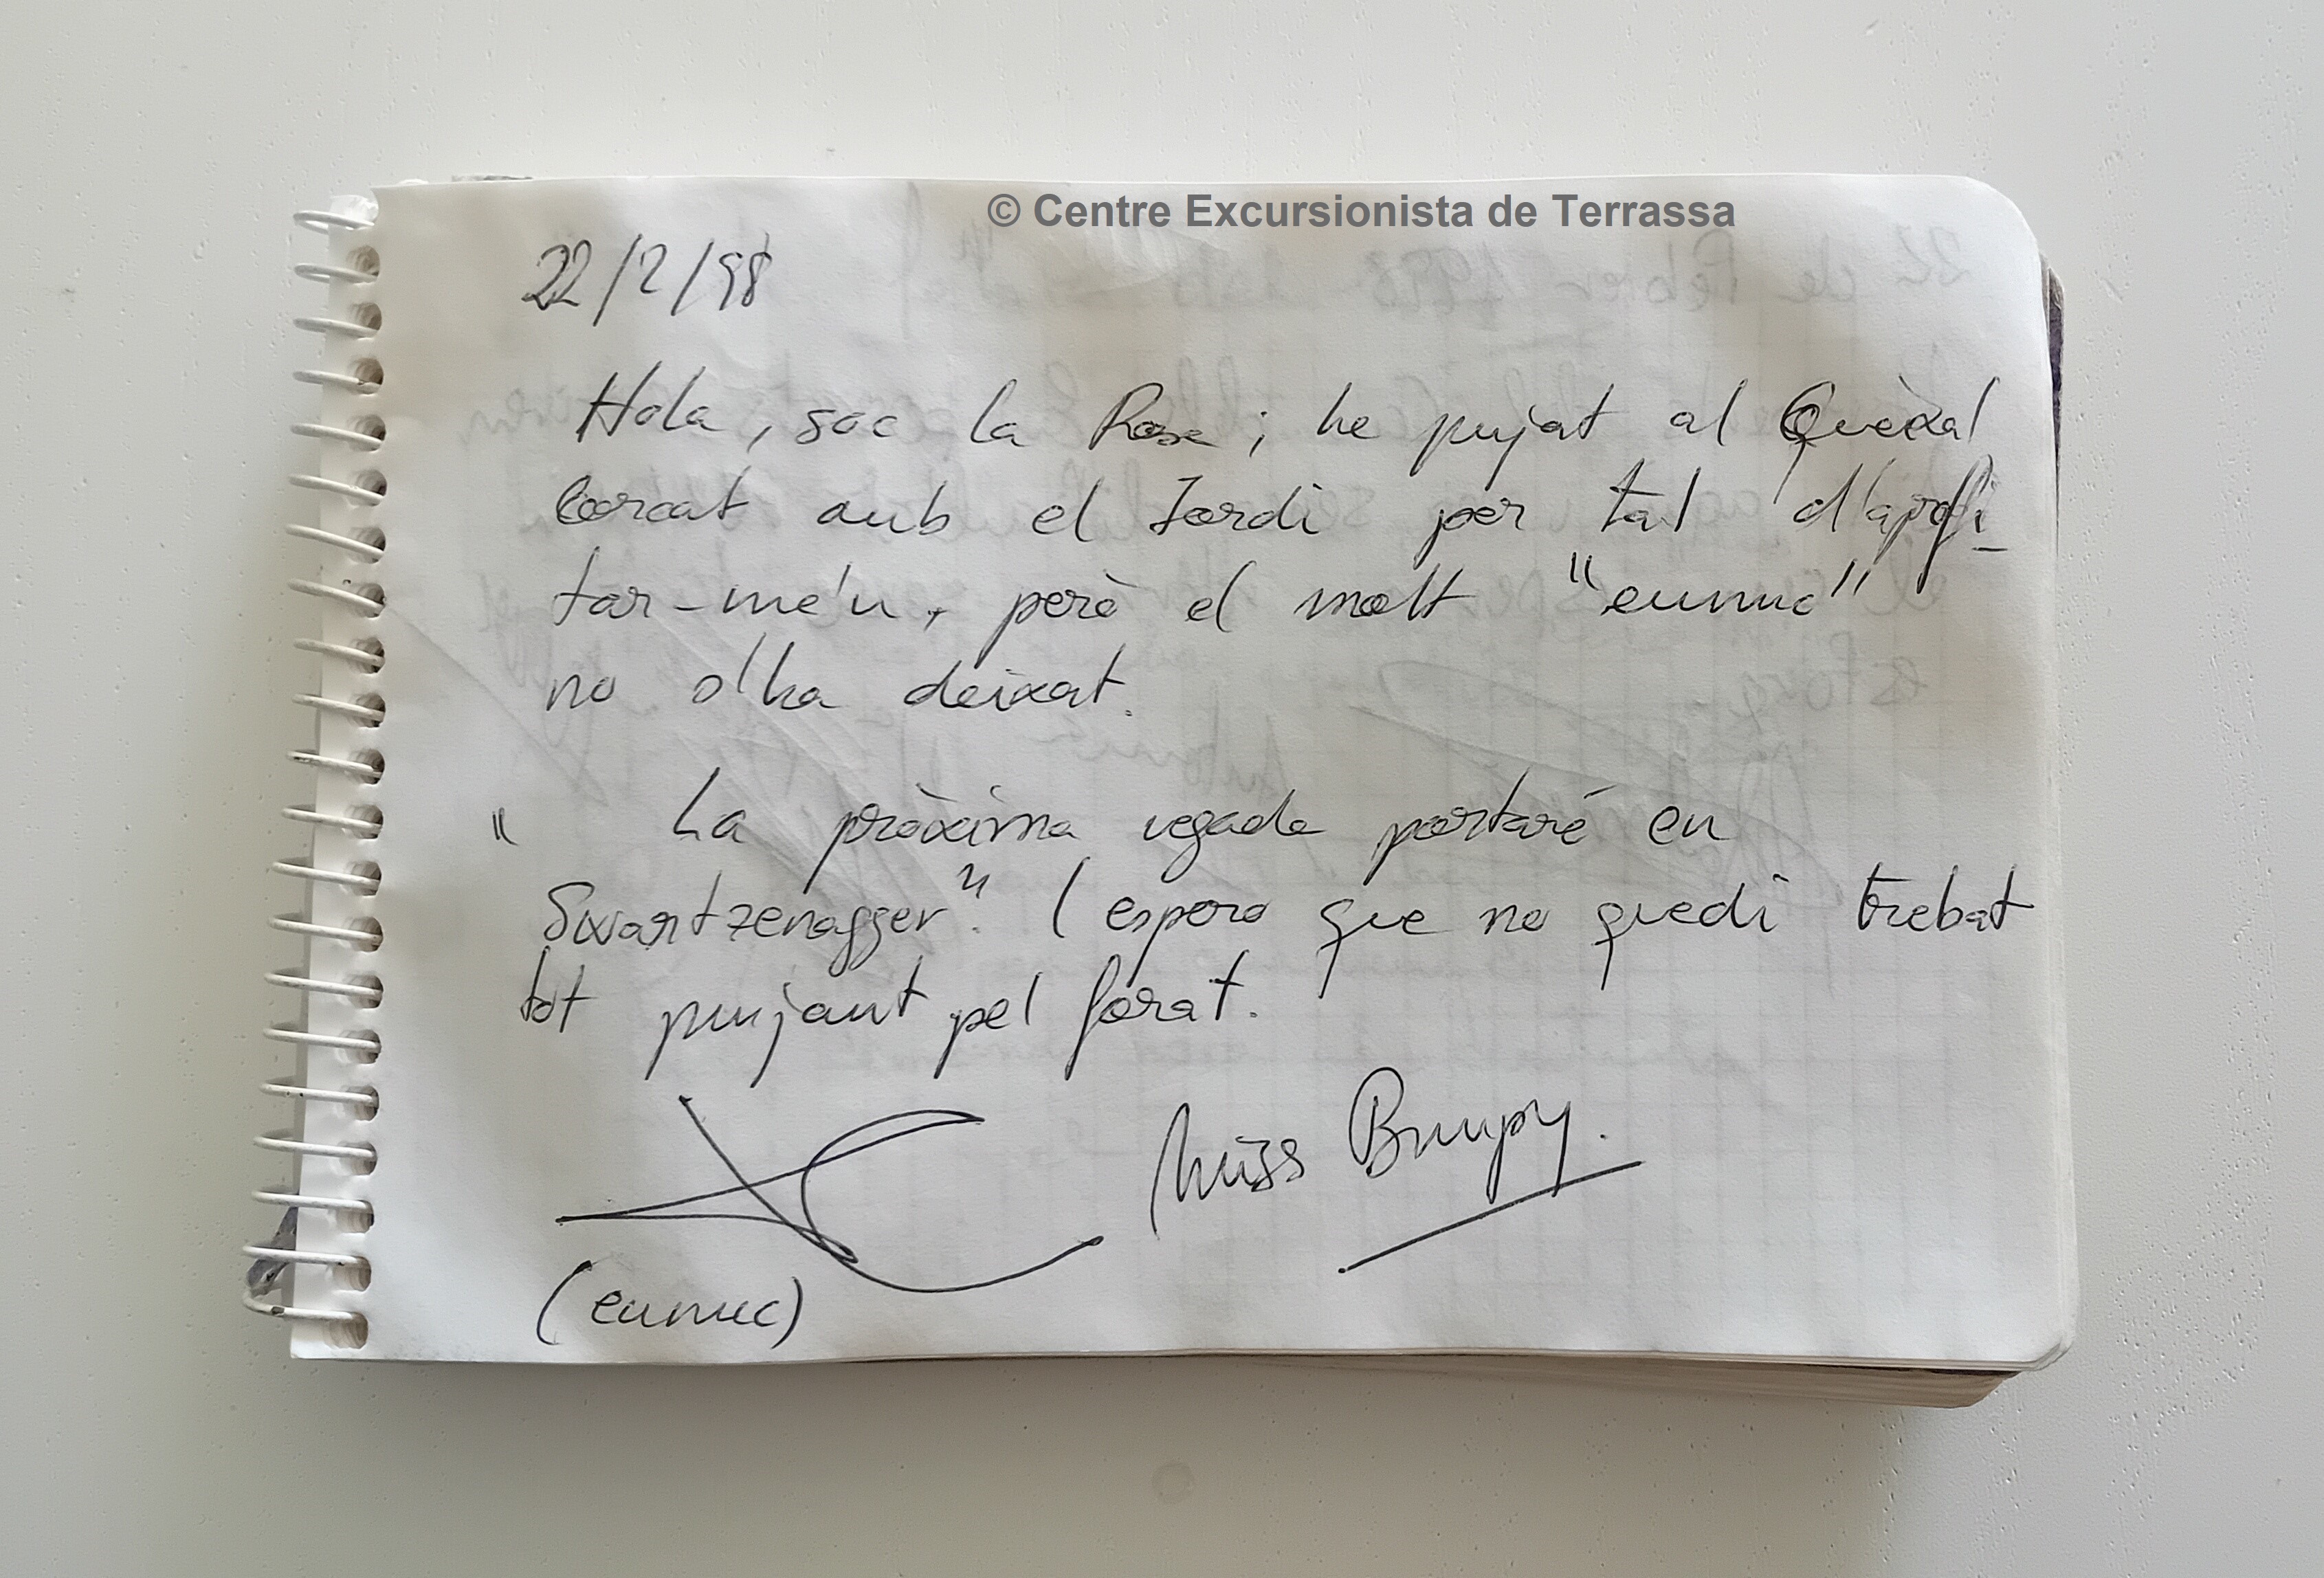 © Centre Excursionista de Terrassa
22/2/98
Hola, soc la Rosa; he pujat al Queixal
Corcat amb el Jordi per tal d'aprofi-
tar-me'n, però el molt "eunuc"
no s'ha deixat.
" La pròxima vegada portaré en
Swartzenagger". I espero que no quedi trebat
tot pujant pel forat.
Miss Bumpy.
(eunuc)